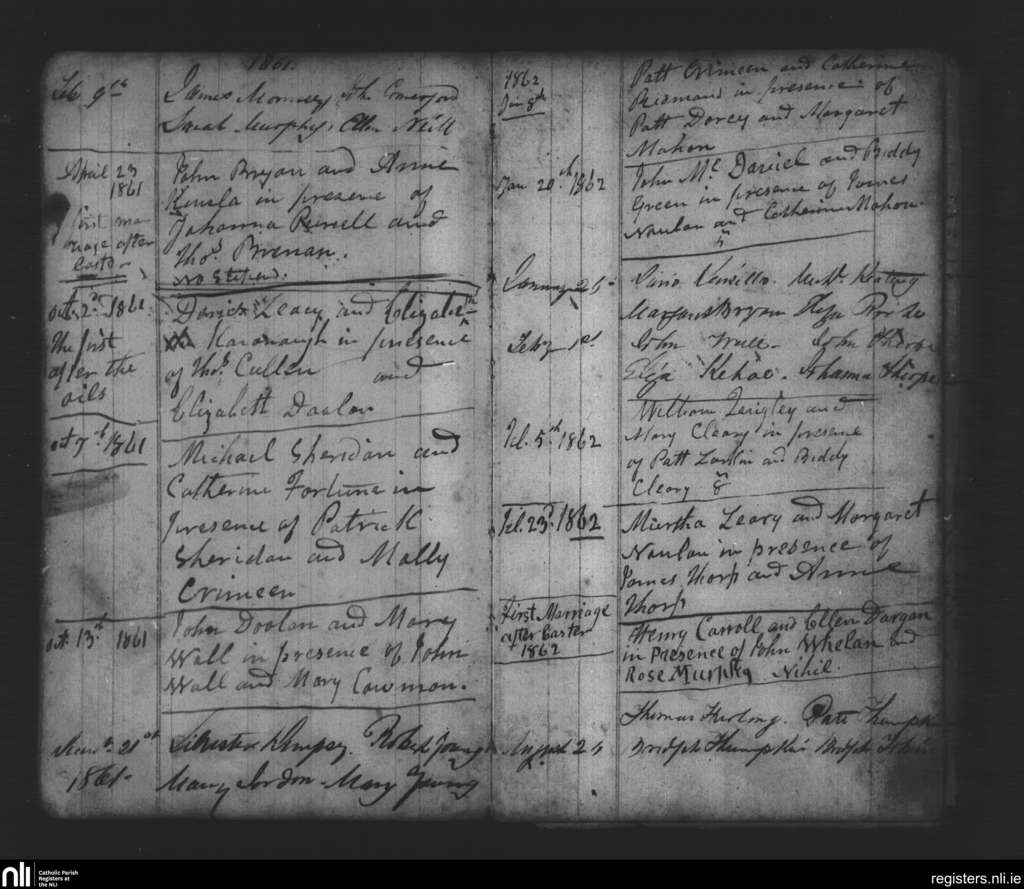 1861.
Feb 9th
James Morrissey John Comerford
Sarah Murphy, Ellen Neill
April 23
1861
first mar
riage after
Easter
John Bryan and Anne
Kinsla in presence of
Johanna Russell and
Thos. Brenan.
No Stipend.
Oct. 2d. 1861
The first
after the
oils
David Leary and Elizabeth
Kavanaugh in presence
of Thos. Cullen and
Elizabeth Doolan
Oct 7th 1861
Michael Sheridan and
Catherine Fortune in
presence of Patrick
Sheridan and Mally
Crimeen
Oct. 13th 1861
John Doolan and Mary
Wall in presence of John
Wall and Mary Cowman.
21st
1861
Silvester Dempsey. Robert Young
Mary Jordon - Mary Young
1862
Jan 8th
Patt Crimeen and Catherine
Redmond in presence of
Patt Dorcy and Margaret
Mahon
Jan. 20th 1862
John Mc Daniel and Biddy
Green in presence of James
Nowlan and Catherine Mahon
January 25
Margaret Bryan
Feby 1st
John John Thorpe
Eliza Kehoe - Johanna Thorpe
Feb. 5th 1862
William Quigley and
Mary Cleary in presence
of Patt Larkin and Biddy
Cleary
Feb. 23d. 1862
Murtha Leary and Margaret
Nowlan in presence of
James Thorp and Anne
Thorp
First Marriage
after Easter
1862
Henry Carroll and Ellen Dargan
in Presence of John Whelan and
Rose Murphy Nihil.
August 25
Thomas Furlong. Patt
Bridget Bridget
nli
Catholic Parish
Registers at
the NLI
registers.nli.ie